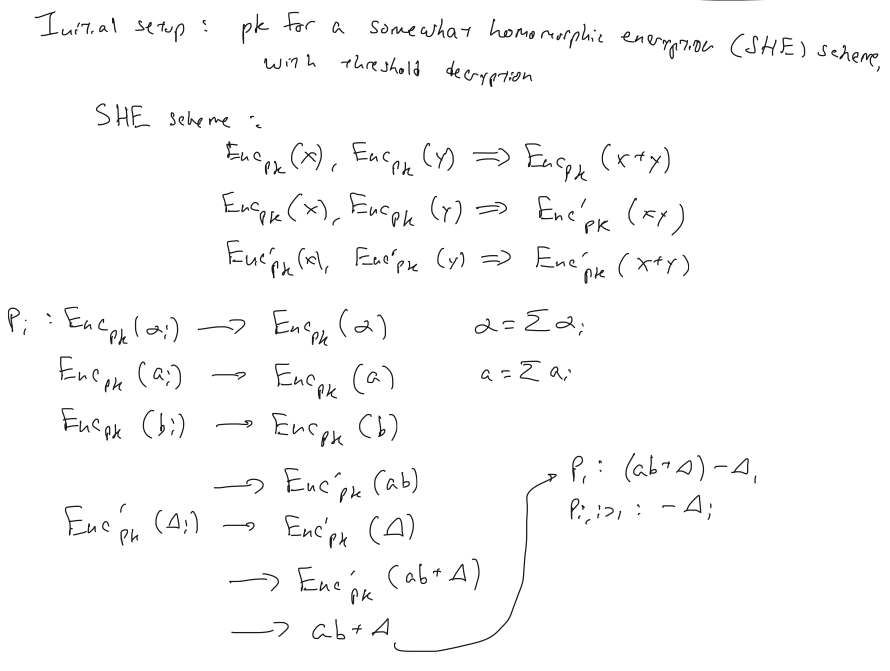 Initial setup : pk for a somewhat homomorphic encryption (SHE) scheme,
with threshold decryption
SHE scheme :
Enc_pk (x), Enc_pk (y) ⇒ Enc_pk (x+y)
Enc_pk (x), Enc_pk (y) ⇒ Enc'_pk (xy)
Enc'_pk (x), Enc'_pk (y) ⇒ Enc'_pk (x+y)
P_i : Enc_pk (α_i) → Enc_pk (α) α = Σ α_i
Enc_pk (a_i) → Enc_pk (a) a = Σ a_i
Enc_pk (b_i) → Enc_pk (b)
→ Enc'_pk (ab)
Enc'_pk (Δ_i) → Enc'_pk (Δ)
→ Enc'_pk (ab+Δ)
→ ab+Δ
P_1 : (ab+Δ) - Δ_1
P_i, i>1 : - Δ_i